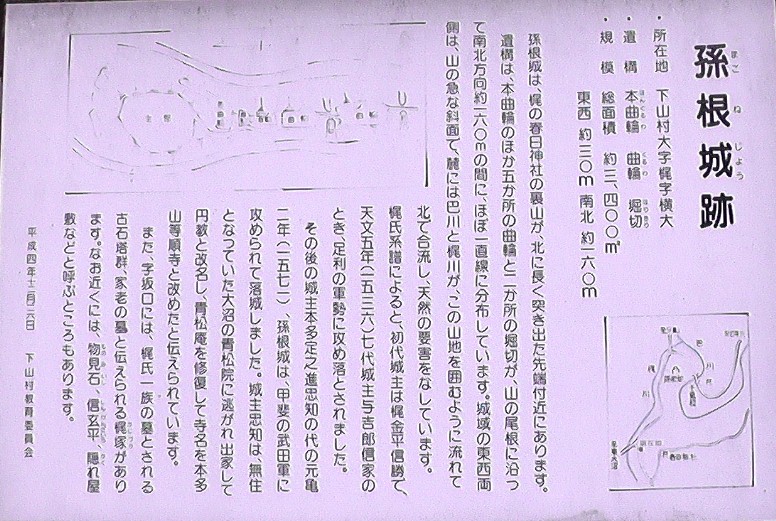 孫根城跡
まごねじょう
・所在地 下山村大字梶字横大
・遺構 本曲輪 曲輪 堀切
ほんくるわ くるわ ほりきり
・規模 総面積 約三、四〇〇㎡
東西 約三〇m 南北 約一六〇m
孫根城は、梶の春日神社の裏山が、北に長く突き出た先端付近にあります。
遺構は、本曲輪のほか五か所の曲輪と二か所の堀切が、山の尾根に沿っ
て南北方向約一六〇mの間に、ほぼ一直線に分布しています。城域の東西両
側は、山の急な斜面で、麓には巴川と梶川が、この山地を囲むように流れて
北で合流し、天然の要害をなしています。
梶氏系譜によると、初代城主は梶金平信勝で、
天文五年(一五三六)七代城主与吉郎信家の
とき、足利の軍勢に攻め落とされました。
その後の城主本多足之進忠知の代の元亀
二年(一五七一)、孫根城は、甲斐の武田軍に
攻められて落城しました。城主忠知は、無住
となっていた大沼の青松院に逃がれ出家して
円教と改名し、青松庵を修復して寺名を本多
山等順寺と改めたと伝えられています。
また、字坂口には、梶氏一族の墓とされる
古石塔群、家老の墓と伝えられる梶塚があり
ます。なお近くには、物見石、信玄平、隠れ屋
敷などと呼ぶところもあります。
平成四年十二月二六日 下山村教育委員会
主郭
巴川
梶川